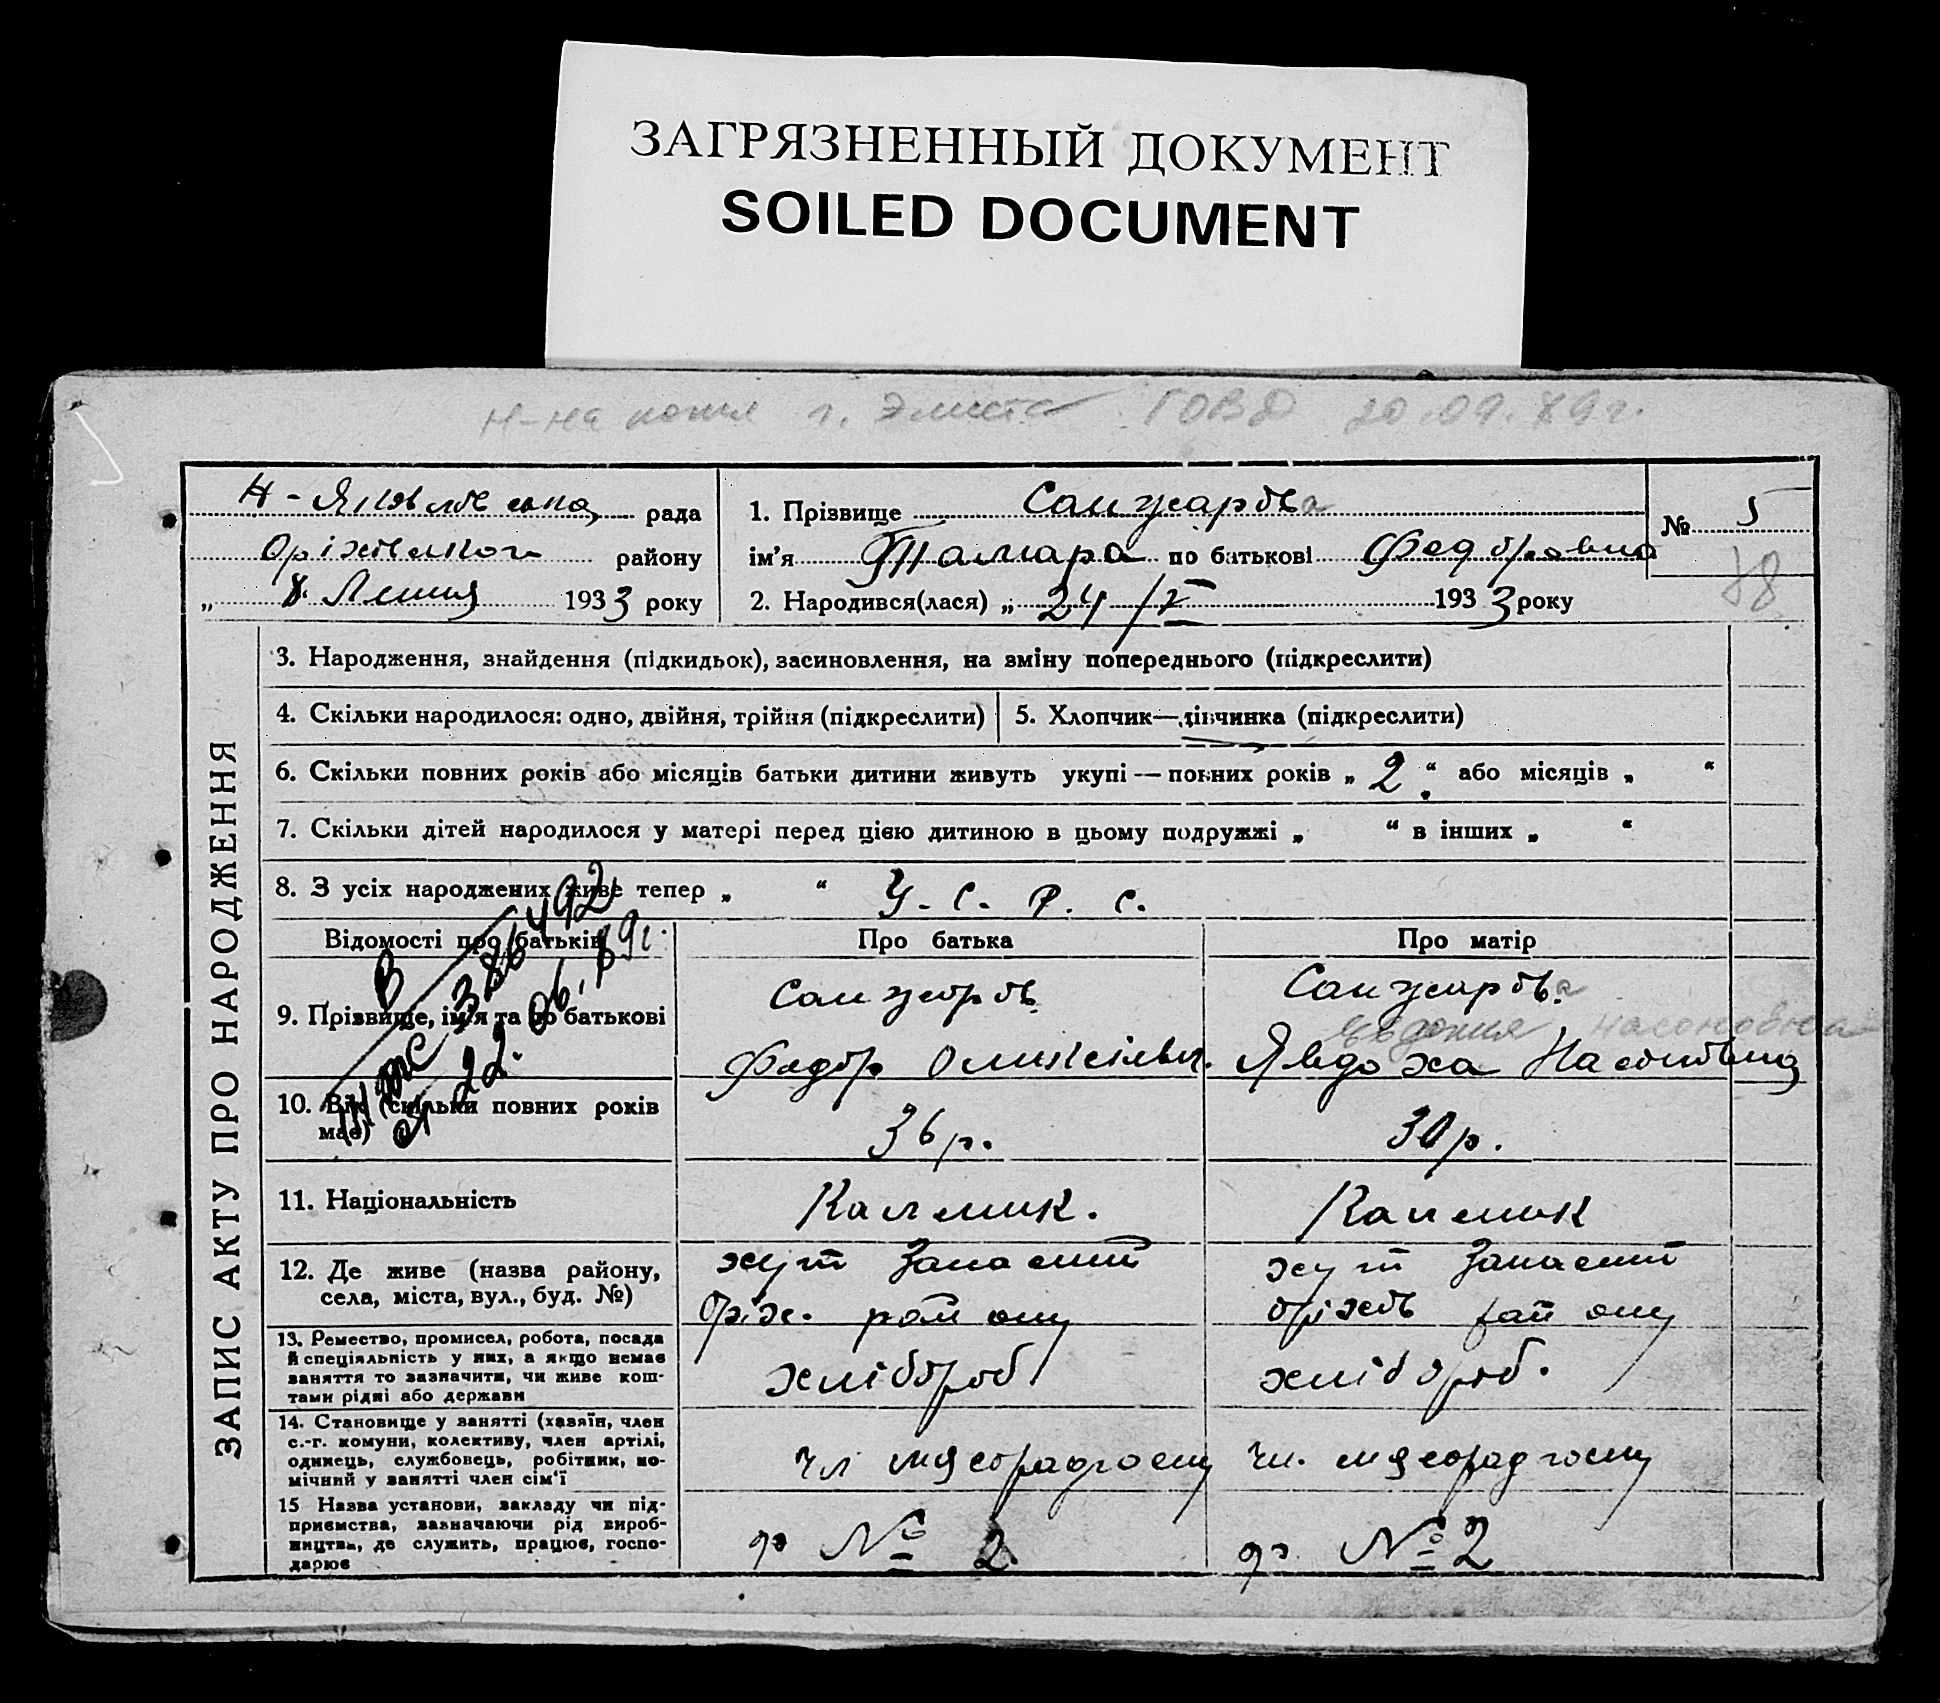 ЗАГРЯЗНЕННЫЙ ДОКУМЕНТ
SOILED DOCUMENT
г. Элиста ГОВД 20.09.89г.
рада
району
193 3 року
1. Прізвище Санжарова
ім'я Тамара по батькові Федоровна
2. Народився(лася) „ 24/V 193 3 року
№ 5
78
ЗАПИС АКТУ ПРО НАРОДЖЕННЯ
3. Народження, знайдення (підкидьок), засиновлення, на зміну попереднього (підкреслити)
4. Скільки народилося: одно, двійня, трійня (підкреслити)
5. Хлопчик—дівчинка (підкреслити)
6. Скільки повних років або місяців батьки дитини живуть укупі — повних років „ 2 “ або місяців „ “
7. Скільки дітей народилося у матері перед цією дитиною в цьому подружжі „ “ в інших „ “
8. З усіх народжених живе тепер „ “ У. С. Р. С.
Відомості про батьків
Про батька
Про матір
386492
22.06.89г.
9. Прізвище, ім'я та по батькові
Санжаров
Федор
Санжарова
Явдоха
10. Вік (скільки повних років має)
36 р.
30 р.
11. Національність
Калмик.
Калмик
12. Де живе (назва району,
села, міста, вул., буд. №)
хут Запасний
Оріх. району
хут Запасний
Оріхов району
13. Ремество, промисел, робота, посада
й спеціяльність у них, а якщо немає
заняття то зазначити, чи живе кош-
тами рідні або держави
хлібороб
хлібороб.
14. Становище у занятті (хазяїн, член
с.-г. комуни, колективу, член артілі,
одинець, службовець, робітник, по-
мічний у занятті член сім'ї
чл мясорадгоспу
чл. мясорадгоспу
15 Назва установи, закладу чи під-
приємства, зазначаючи рід вироб-
ництва, де служить, працює, госпо-
дарює
№ 2
№ 2